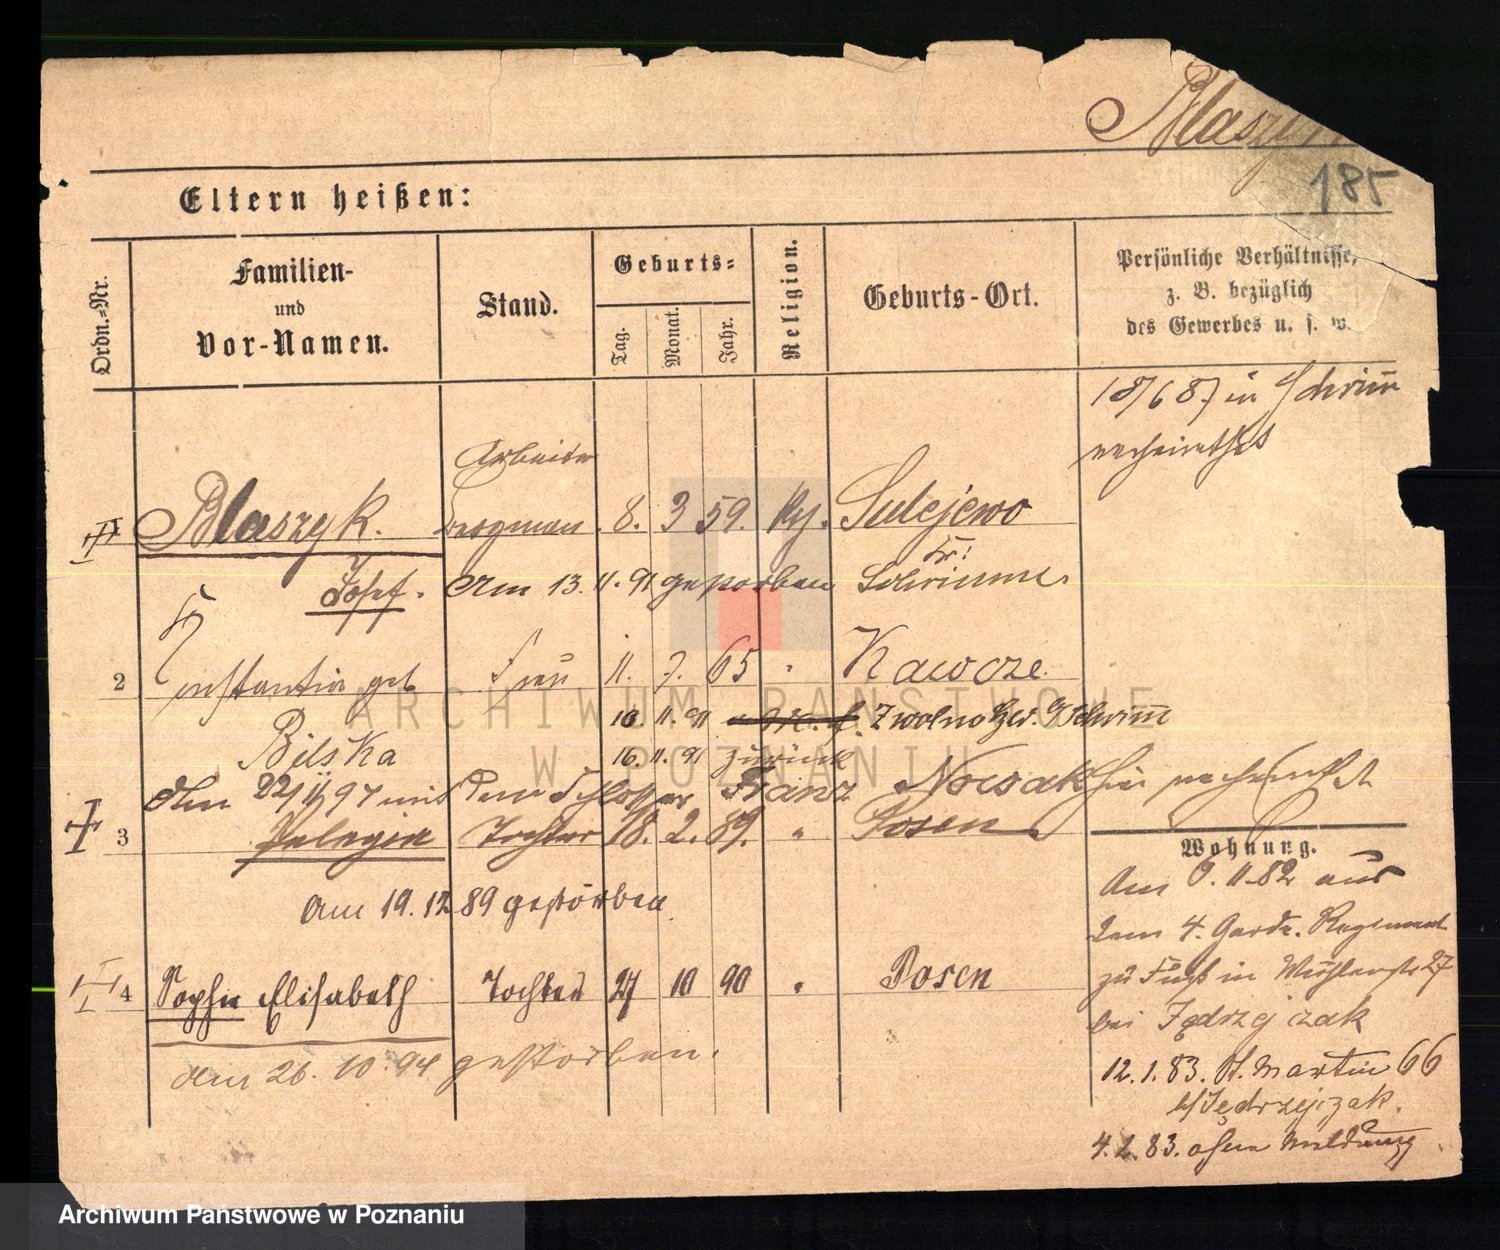 Blaszyk
185
Eltern heißen:
Ordn.-Nr.
Familien-
und
Vor-Namen.
Stand.
Geburts-
Tag.
Monat.
Jahr.
Religion.
Geburts-Ort.
Persönliche Verhältnisse,
z. B. bezüglich
des Gewerbes u. s. w.
18/6 87 in Schrimm
verheirathet
Arbeiter
Blaszyk. 8. 3 59. Sulejewo
Josef. Am 13. 11. 91 gestorben Kr: Schrimm
2 Constantia geb Frau 11. 7. 65 Kawcze
Bilska
10. 11. 91 Zwolno Kr. Schrimm
16. 11. 91 zurück
Am 22/11 97 mit dem Schlosser Franz Nowak hier verheirathet
3 Pelagia Tochter 18. 2. 89. " Posen
Am 19. 12 89 gestorben.
4 Sophie Elisabeth Tochter 27 10 90 " Posen
Am 26. 10. 94 gestorben.
Wohnung.
Am 9. 11. 82 aus
dem 4. Garde. Regiment
zu Fuß in Mühlenstr 27
bei Jędrzejczak
12. 1. 83. St. Martin 66
b/Jędrzejczak.
4. 2. 83. ohne Meldung
ARCHIWUM PAŃSTWOWE
W POZNANIU
Archiwum Państwowe w Poznaniu